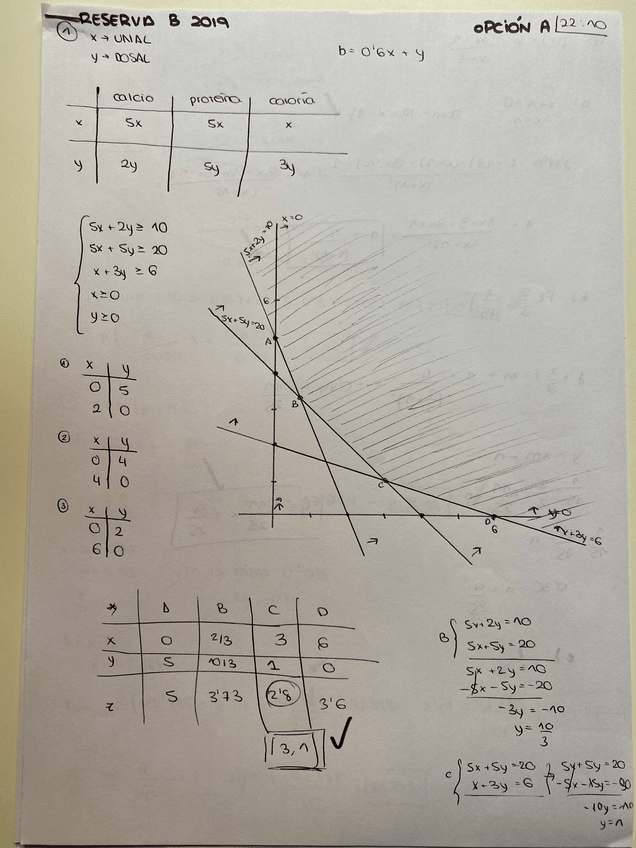 RESERVA B 2019
OPCIÓN A 22:10
① x → UNAL
y → DOSAL
b = 0'6x + y
calcio proteína caloría
x 5x 5x x
y 2y 5y 3y
5x + 2y ≥ 10
5x + 5y ≥ 20
x + 3y ≥ 6
x ≥ 0
y ≥ 0
① x y
0 5
2 0
② x y
0 4
4 0
③ x y
0 2
6 0
5x+2y=10
x=0
6
5x+5y=20
A
B
C
D
6
y=0
x+3y=6
A B C D
x 0 2/3 3 6
y 5 10/3 1 0
z 5 3'73 2'8 3'6
[3,1] ✓
B { 5x+2y=10
5x+5y=20
5x+2y=10
-5x-5y=-20
-3y=-10
y = 10/3
C { 5x+5y=20
x+3y=6
5y+5y=20
-5x-15y=-30
-10y=-10
y=1